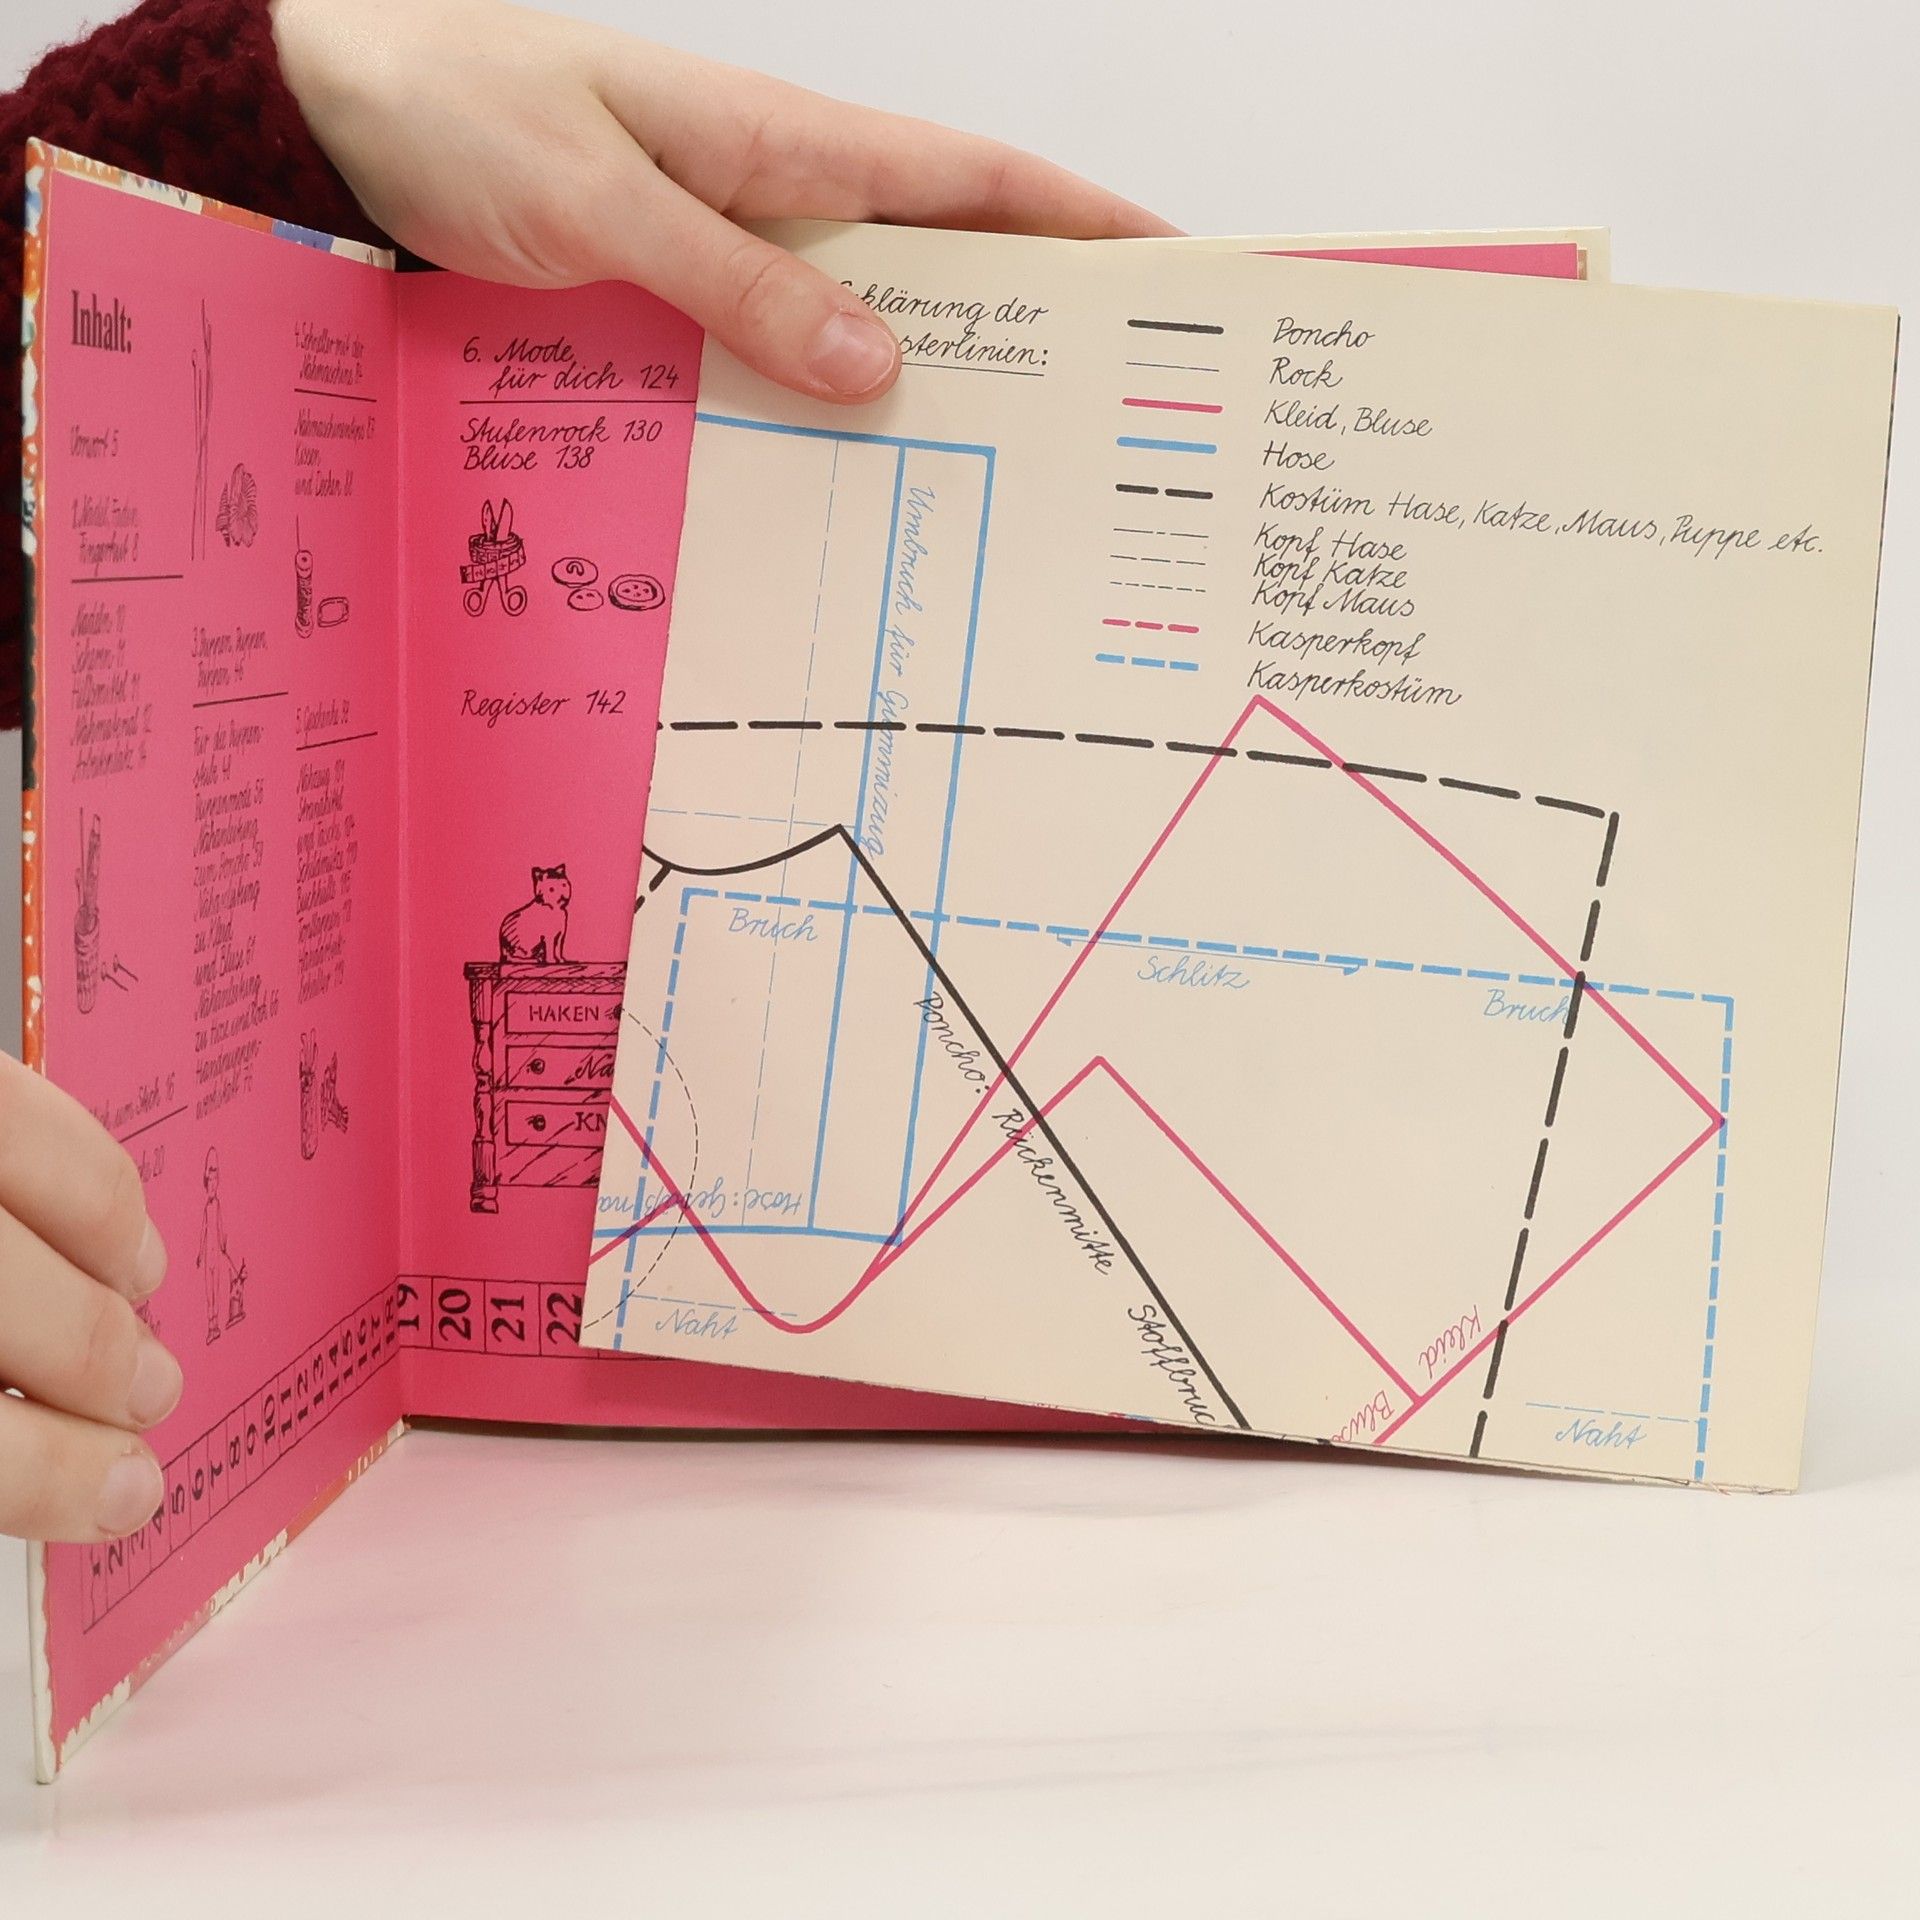 Inhalt:
Vorwort 5
Fingerhut 8
Nadeln 10
Scheren 11
Hilfsmittel 11
Nähmaterial 12
Arbeitsplatz 14
16
20
3. Puppen, Puppen,
Puppen 46
Für die Puppen-
stube 48
Puppenmode 56
Nähanleitung
zum Poncho 59
Nähanleitung
zu Kleid
und Bluse 61
Nähanleitung
zu Hose und Rock 66
Handpuppen-
werkstatt 76
4. Schneller mit der
Nähmaschine 84
Kissen
und Decken 88
5. Geschenke 98
Nähzeug 101
Strandkittel
und Tasche 104
Schildmütze 110
Buchhülle 115
6. Mode
für dich 124
Stufenrock 130
Bluse 138
Register 142
HAKEN
Na
KN
2 3 4 5 6 7 8 9 10 11 12 13 14 15 16 17 18 19 20 21 22
klärung der
sterlinien:
Poncho
Rock
Kleid, Bluse
Hose
Kostüm Hase, Katze, Maus, Puppe etc.
Kopf Hase
Kopf Katze
Kopf Maus
Kasperkopf
Kasperkostüm
Umbruch für Gummizug
Bruch
Schlitz
Bruch
Poncho: Rückenmitte Stoffbruc
Hose: Gesäß
Naht
Kleid
Blus
Naht